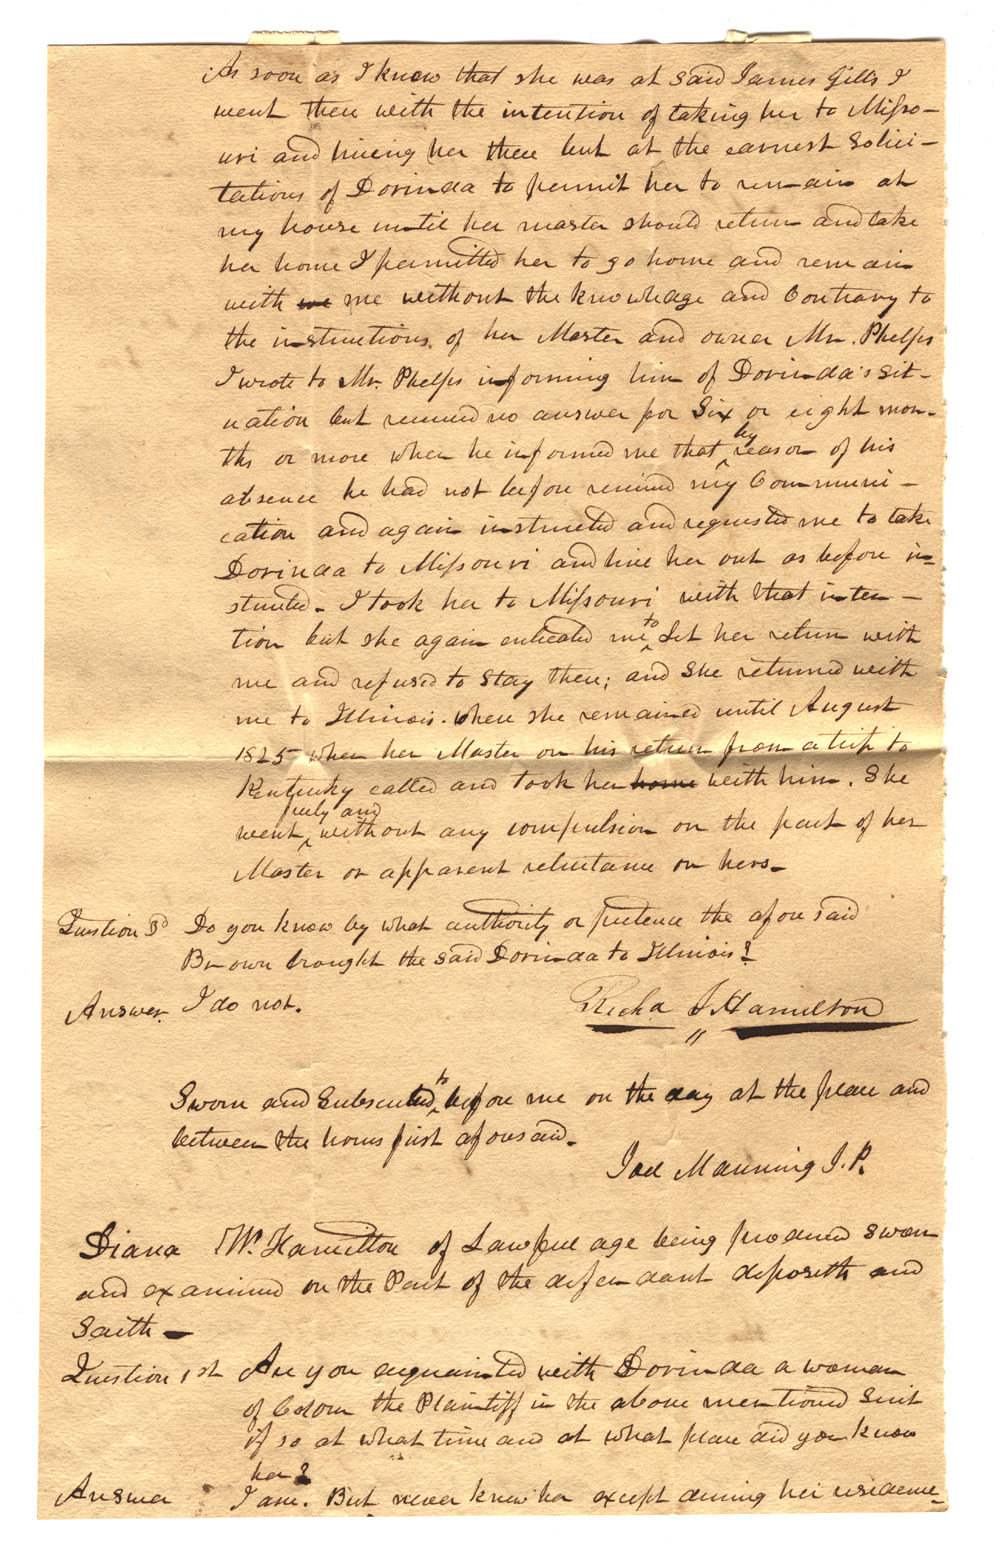 As soon as I knew that she was at said James Gills I
went there with the intention of taking her to Misso-
uri and hireing her there but at the earnest Solici-
tations of Dorinda to permit her to remain at
my house until her master should return and take
her home I permitted her to go home and remain
with we me without the knowledge and Contrary to
the instructions of her Master and owner Mr. Phelps
I wrote to Mr. Phelps informing him of Dorinda's sit-
uation but received no answer for Six or eight mon-
ths or more when he informed me that by reason of his
absence he had not before received my Communi-
cation and again instructed and requested me to take
Dorinda to Missouri and hire her out as before in-
structed. I took her to Missouri with that inten-
tion but she again entreated me to Let her return with
me and refused to Stay there; and She returned with
me to Illinois. where she remained until August
1825 when her Master on his return from a trip to
Kentucky called and took her home with him. She
went freely and without any compulsion on the part of her
Master or apparent reluctance on hers-
Question 3d Do you know by what authority or pretence the afore said
Brown brought the said Dorinda to Illinois?
Answer. I do not.
Richd J. Hamilton
Sworn and Subscribed to before me on the day at the place and
between the hours first aforesaid.
Joel Manning J.P.
Diana W. Hamilton of Lawful age being produced sworn
and examined on the Part of the defendant deposeth and
Saith -
Question 1st Are you acquainted with Dorinda a woman
of Colour the Plaintiff in the above mentioned Suit
if so at what time and at what place did you know
her?
Answer I am. But never knew her except during her residence